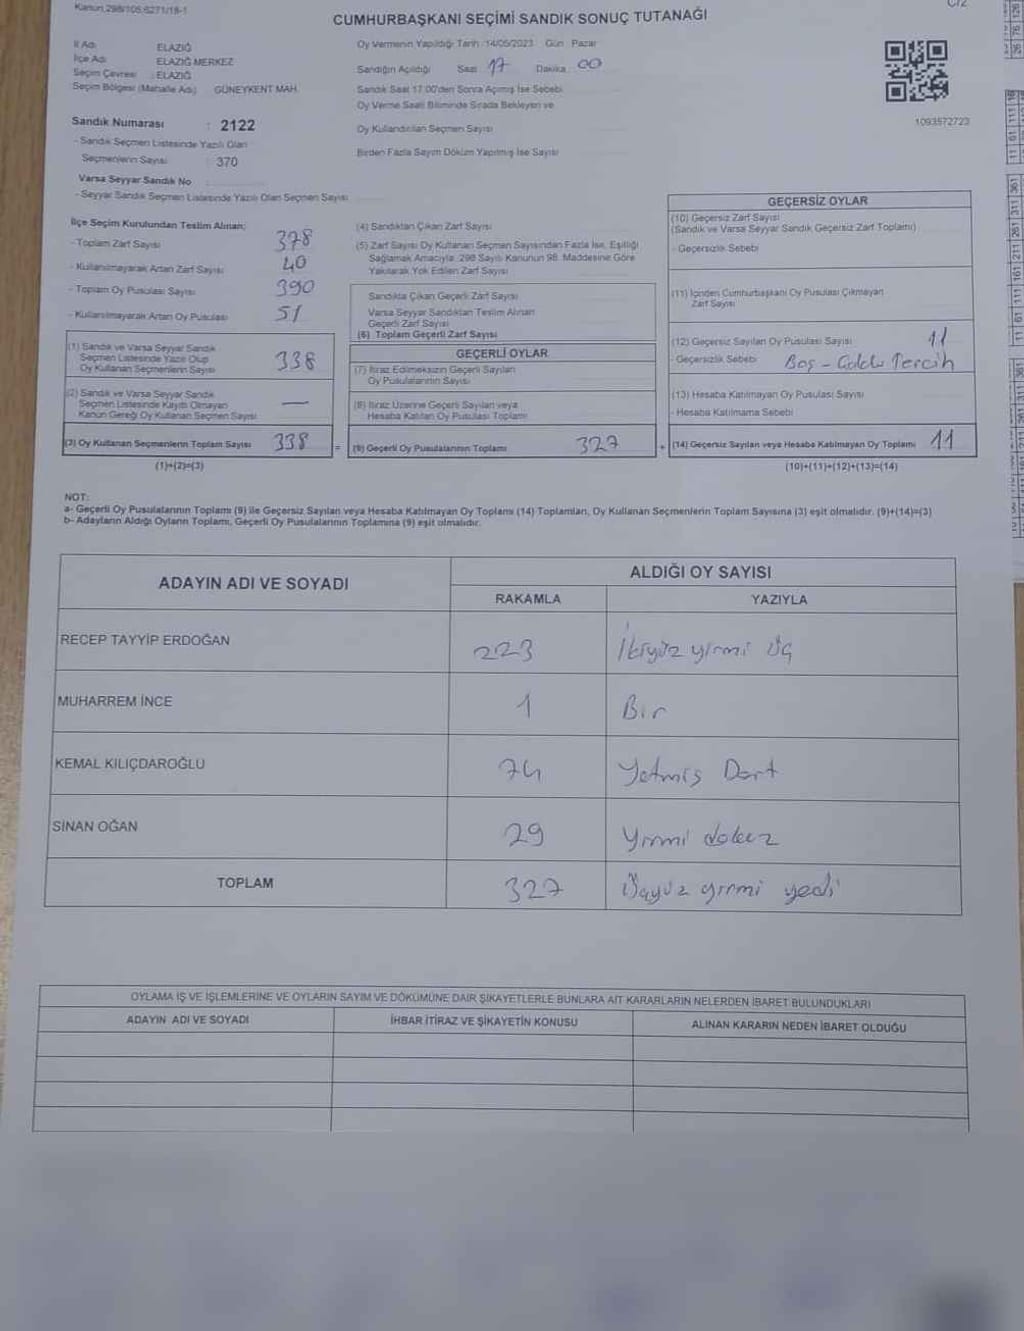 Kanun 298/105 6271/18-1
C/2
CUMHURBAŞKANI SEÇİMİ SANDIK SONUÇ TUTANAĞI
İl Adı ELAZIĞ
İlçe Adı ELAZIĞ MERKEZ
Seçim Çevresi : ELAZIĞ
Seçim Bölgesi (Mahalle Adı) GÜNEYKENT MAH.
Sandık Numarası : 2122
- Sandık Seçmen Listesinde Yazılı Olan
Seçmenlerin Sayısı : 370
Varsa Seyyar Sandık No
- Seyyar Sandık Seçmen Listesinde Yazılı Olan Seçmen Sayısı
Oy Vermenin Yapıldığı Tarih :14/05/2023 Gün Pazar
Sandığın Açıldığı Saat 17 Dakika 00
Sandık Saat 17.00'den Sonra Açılmış İse Sebebi
Oy Verme Saati Bitiminde Sırada Bekleyen ve
Oy Kullandırılan Seçmen Sayısı
Birden Fazla Sayım Döküm Yapılmış İse Sayısı
1093572723
İlçe Seçim Kurulundan Teslim Alınan;
- Toplam Zarf Sayısı 378
- Kullanılmayarak Artan Zarf Sayısı 40
- Toplam Oy Pusulası Sayısı 390
- Kullanılmayarak Artan Oy Pusulası 51
(1) Sandık ve Varsa Seyyar Sandık
Seçmen Listesinde Yazılı Olup
Oy Kullanan Seçmenlerin Sayısı 338
(2) Sandık ve Varsa Seyyar Sandık
Seçmen Listesinde Kayıtlı Olmayan
Kanun Gereği Oy Kullanan Seçmen Sayısı —
(3) Oy Kullanan Seçmenlerin Toplam Sayısı 338 =
(1)+(2)=(3)
(4) Sandıktan Çıkan Zarf Sayısı
(5) Zarf Sayısı Oy Kullanan Seçmen Sayısından Fazla İse, Eşitliği
Sağlamak Amacıyla, 298 Sayılı Kanunun 98. Maddesine Göre
Yakılarak Yok Edilen Zarf Sayısı
Sandıkta Çıkan Geçerli Zarf Sayısı
Varsa Seyyar Sandıktan Teslim Alınan
Geçerli Zarf Sayısı
(6) Toplam Geçerli Zarf Sayısı
GEÇERLİ OYLAR
(7) İtiraz Edilmeksizin Geçerli Sayılan
Oy Pusulalarının Sayısı
(8) İtiraz Üzerine Geçerli Sayılan veya
Hesaba Katılan Oy Pusulası Toplamı
(9) Geçerli Oy Pusulalarının Toplamı 327 +
GEÇERSİZ OYLAR
(10) Geçersiz Zarf Sayısı
(Sandık ve Varsa Seyyar Sandık Geçersiz Zarf Toplamı)
- Geçersizlik Sebebi
(11) İçinden Cumhurbaşkanı Oy Pusulası Çıkmayan
Zarf Sayısı
(12) Geçersiz Sayılan Oy Pusulası Sayısı 11
- Geçersizlik Sebebi Boş - Çoklu Tercih
(13) Hesaba Katılmayan Oy Pusulası Sayısı
- Hesaba Katılmama Sebebi
(14) Geçersiz Sayılan veya Hesaba Katılmayan Oy Toplamı 11
(10)+(11)+(12)+(13)=(14)
NOT:
a- Geçerli Oy Pusulalarının Toplamı (9) ile Geçersiz Sayılan veya Hesaba Katılmayan Oy Toplamı (14) Toplamları, Oy Kullanan Seçmenlerin Toplam Sayısına (3) eşit olmalıdır. (9)+(14)=(3)
b- Adayların Aldığı Oyların Toplamı, Geçerli Oy Pusulalarının Toplamına (9) eşit olmalıdır.
ADAYIN ADI VE SOYADI ALDIĞI OY SAYISI
RAKAMLA YAZIYLA
RECEP TAYYİP ERDOĞAN 223 İkiyüz yirmi üç
MUHARREM İNCE 1 Bir
KEMAL KILIÇDAROĞLU 74 Yetmiş Dört
SİNAN OĞAN 29 Yirmi dokuz
TOPLAM 327 Üçyüz yirmi yedi
OYLAMA İŞ VE İŞLEMLERİNE VE OYLARIN SAYIM VE DÖKÜMÜNE DAİR ŞİKAYETLERLE BUNLARA AİT KARARLARIN NELERDEN İBARET BULUNDUKLARI
ADAYIN ADI VE SOYADI İHBAR İTİRAZ VE ŞİKAYETİN KONUSU ALINAN KARARIN NEDEN İBARET OLDUĞU